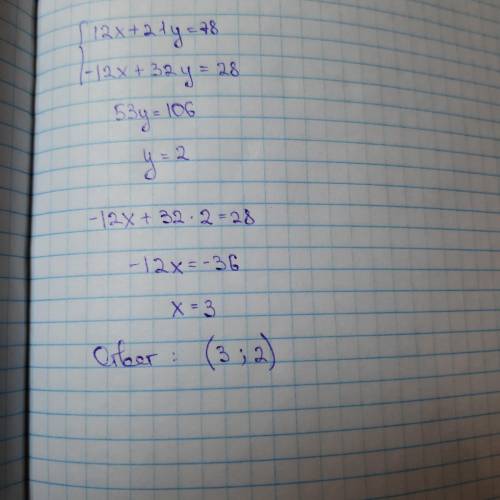 12x+21y=78
-12x+32y=28
53y=106
y=2
-12x+32·2=28
-12x=-36
x=3
Ответ: (3;2)